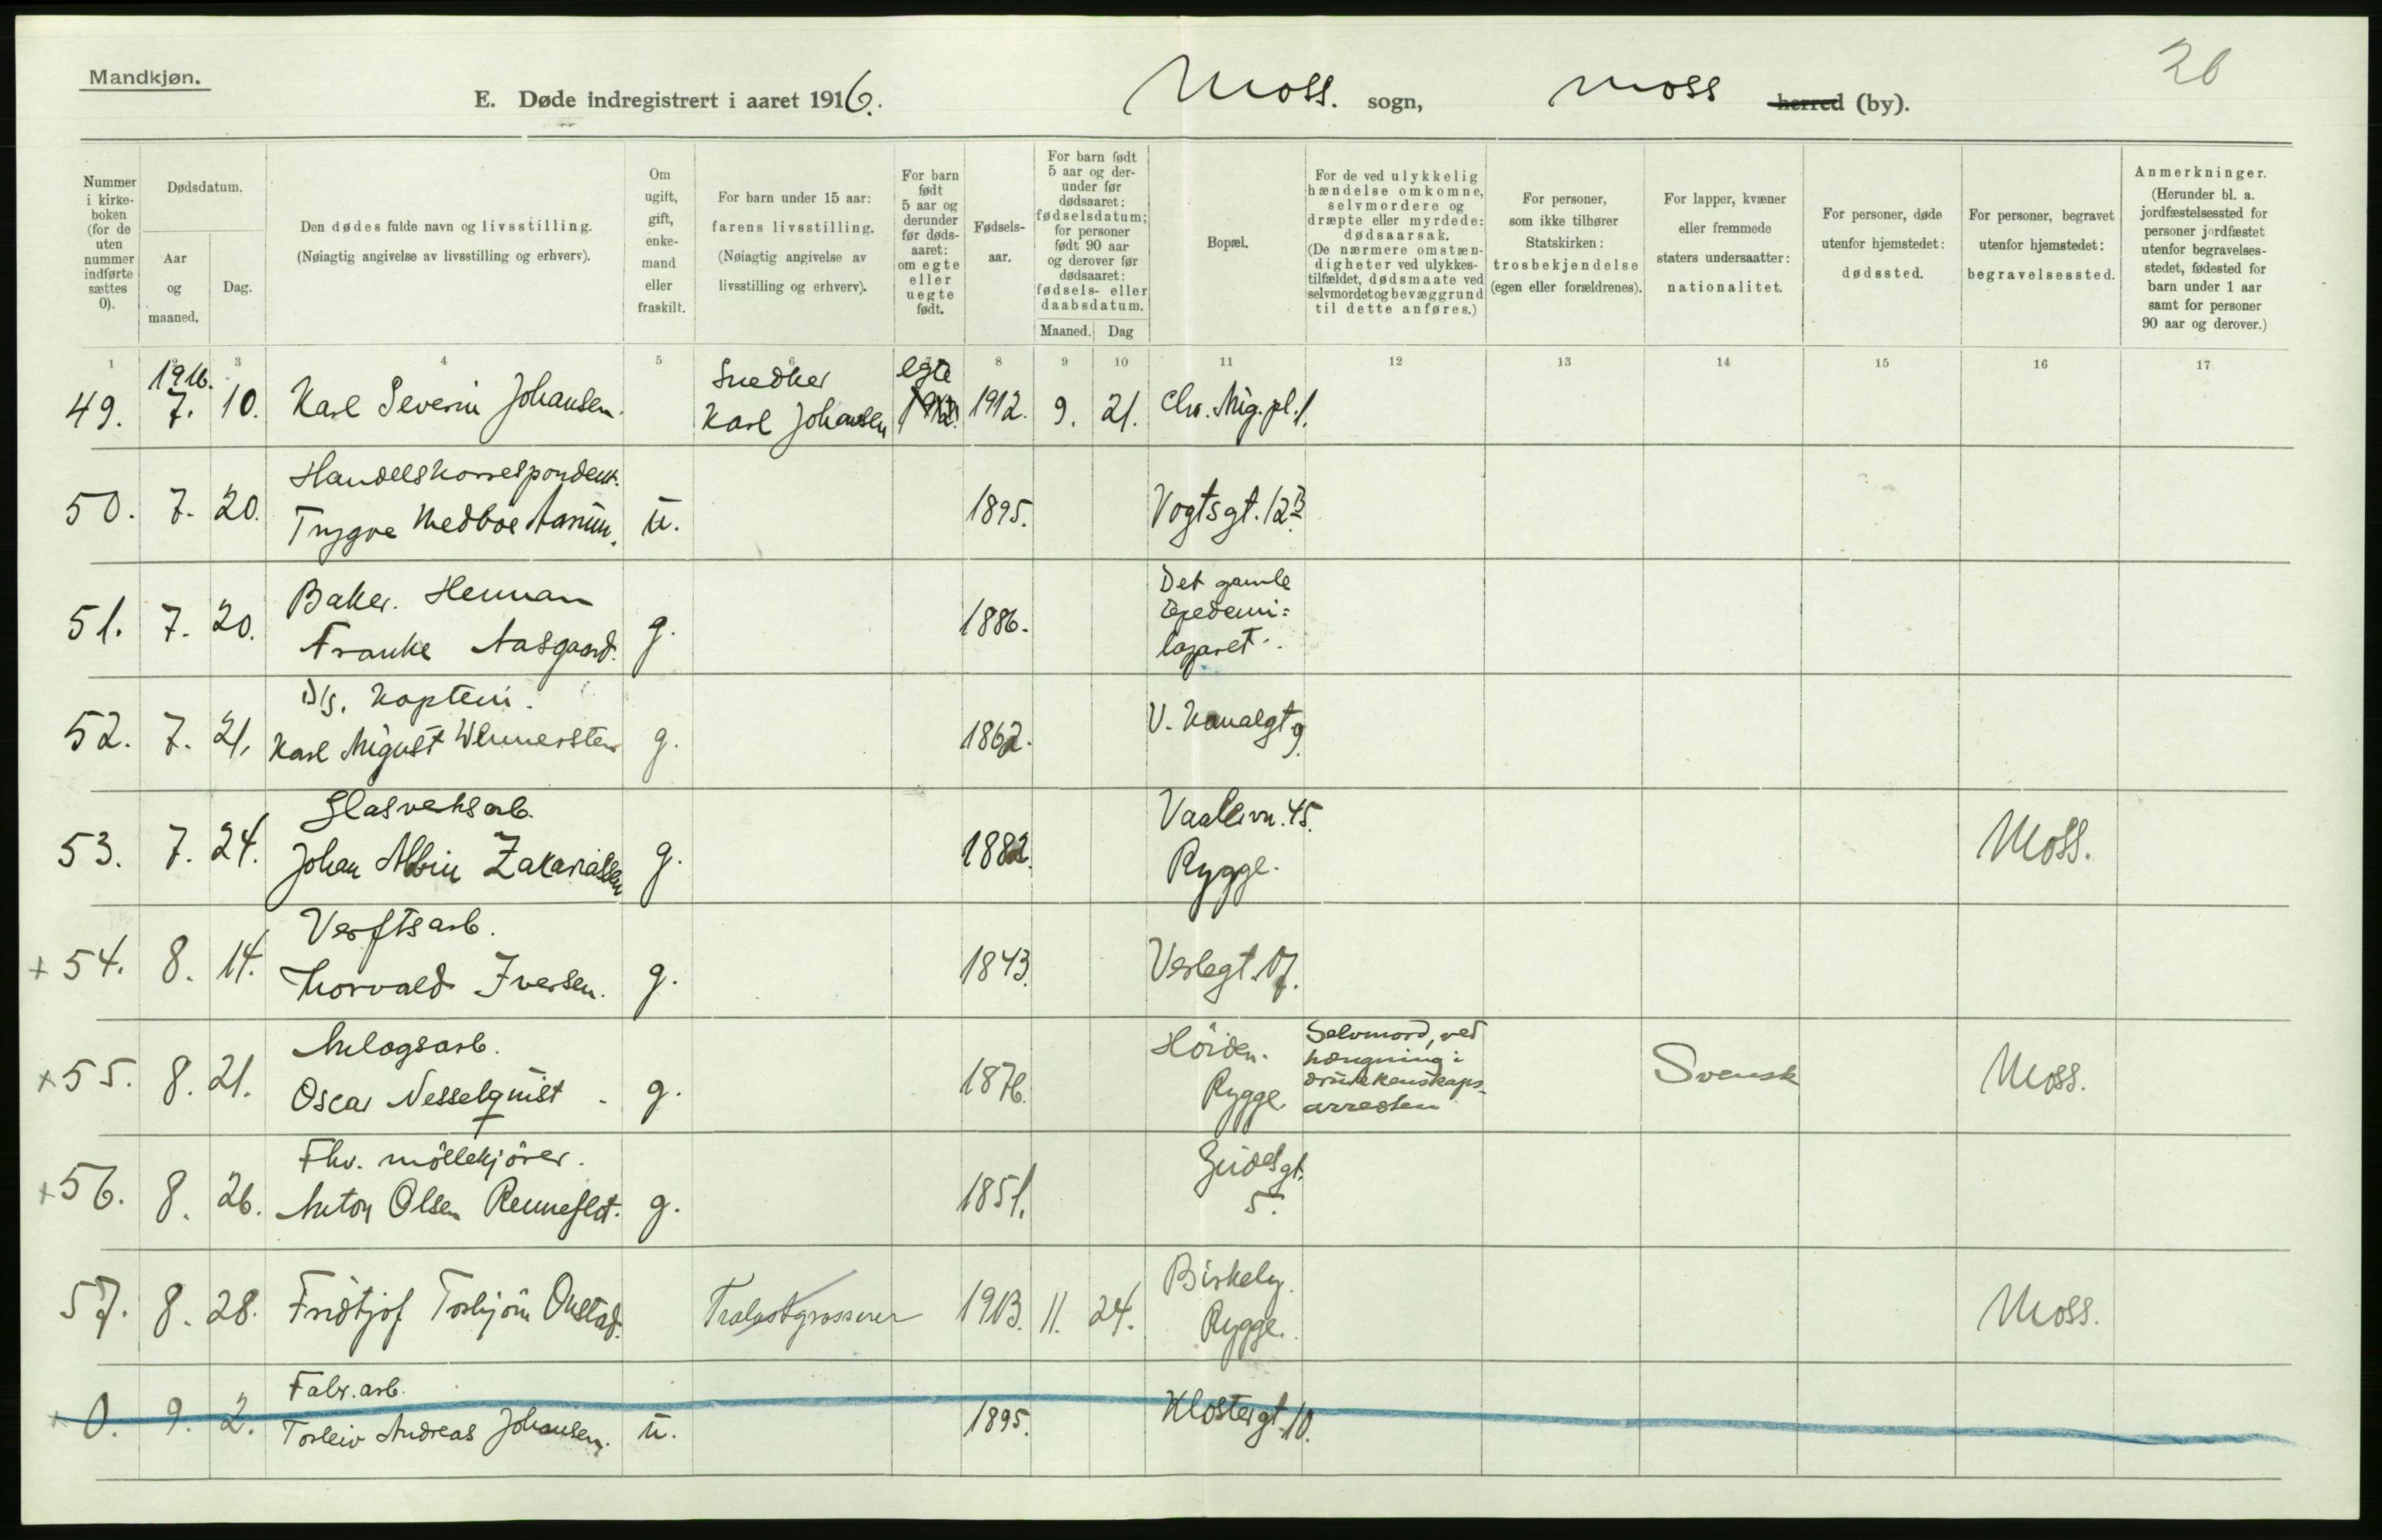 Mandkjøn.
20
E. Døde indregistrert i aaret 1916.
Moss. sogn,
Moss herred (by).
Nummer i kirke-boken (for de uten nummer indførte sættes 0).
Dødsdatum.
Aar og maaned.
Dag.
Den dødes fulde navn og livsstilling.
(Nøiagtig angivelse av livsstilling og erhverv).
Om ugift, gift, enke-mand eller fraskilt.
For barn under 15 aar: farens livsstilling.
(Nøiagtig angivelse av livsstilling og erhverv).
For barn født 5 aar og derunder før døds-aaret: om egte eller uegte født.
Fødsels-aar.
For barn født 5 aar og der-under før dødsaaret: fødselsdatum; for personer født 90 aar og derover før dødsaaret: fødsels- eller daabsdatum.
Maaned. Dag
Bopæl.
For de ved ulykkelig hændelse omkomne, selvmordere og dræpte eller myrdede: dødsaarsak.
(De nærmere omstæn-digheter ved ulykkes-tilfældet, dødsmaate ved selvmordet og bevæggrund til dette anføres.)
For personer, som ikke tilhører Statskirken: trosbekjendelse (egen eller forældrenes).
For lapper, kvæner eller fremmede staters undersaatter: nationalitet.
For personer, døde utenfor hjemstedet: dødssted.
For personer, begravet utenfor hjemstedet: begravelsessted.
Anmerkninger.
(Herunder bl. a. jordfæstelsessted for personer jordfæstet utenfor begravelses-stedet, fødested for barn under 1 aar samt for personer 90 aar og derover.)
1 3 4 5 6 8 9 10 11 12 13 14 15 16 17
1916. Snedker egte
49. 7. 10. Karl Severin Johansen. Karl Johansen 1912. 1912. 9. 21. Chr. Aug. pl. 1.
Handelskorrespondent.
50. 7. 20. Trygve Medboe Aanrum. u. 1895. Vogtsgt. 12 B
Baker. Herman Det gamle
51. 7. 20. Franke Aasgaard. g. 1886. Epedemi=
lazaret.
D/S. Kaptein.
52. 7. 21. Karl August Wennersten g. 1862. V. Kanalgt 9.
Glasverksarb. Vaalervn. 45.
53. 7. 24. Johan Albin Zakariassen g. 1882. Rygge. Moss.
Verftsarb.
+ 54. 8. 14. Thorvald Iversen. g. 1843. Verlegt. 17.
Anlægsarb. Höiden. Selvmord, ved
+ 55. 8. 21. Oscar Nesselquist. g. 1876. Rygge hængning i Svensk Moss.
drukkenskaps-
arresten
Fhv. möllekjörer.
+ 56. 8. 26. Anton Olsen Renneflot. g. 1851. Gudesgt.
5.
57. 8. 28. Fridtjof Torbjörn Onstad. Trælastgrosserer 1913. 11. 24. Birkely. Rygge. Moss.
Fabr. arb.
+ 0. 9. 2. Torleiv Andreas Johansen. u. 1895. Klostergt. 10.